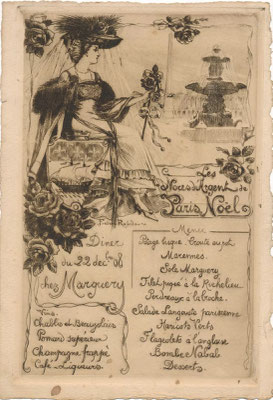 Les
Noces d'Argent de
Paris Noël
Diner
du 22 déc 08
chez Marguery
Vins
Chablis et Beaujolais
Pomard superieur
Champagne frappé
Café Liqueurs
Menu
Croute au pot
Marennes
Sole Marguery
Filet piqué à la Richelieu
Perdreaux à la broche
Salade Langouste parisienne
Haricots Verts
Flageolets à l'anglaise
Bombe Nabab
Desserts